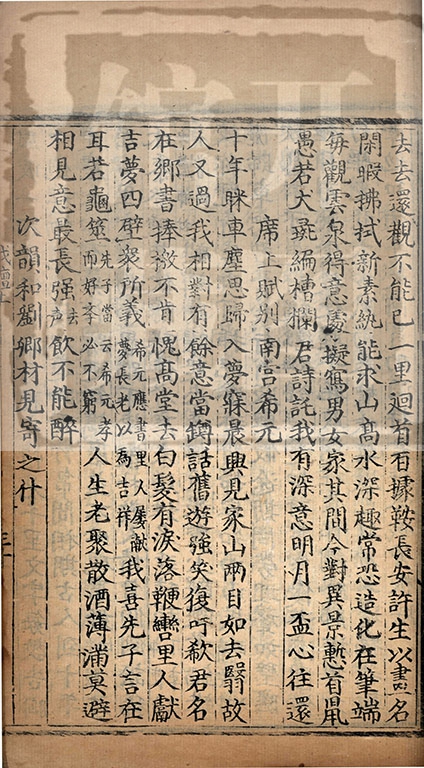 去去還觀不能已一里迴首石據鞍長安許生以畫名
閑暇拂拭新素紈能求山髙水深趣常恐造化在筆端
每觀雲泉得意處擬寫男女家其間今對異景慙首鼠
愚若犬彘緬槽攔君詩託我有深意明月一盃心往還
席上賦别南宫希元
十年眯車塵思歸入夢寐晨興見家山兩目如去翳故
人又過我相對有餘意當鐏話舊遊強笑復吁欷君名
在鄉書捧檄不肯愧髙堂去白髮有淚落鞭轡里人獻
吉夢四辟衆所義希元應書里人屢獻夢長老以為吉祥我喜先子言在
耳若龜筮先子當云希元孝而好李必不窮人生老聚散酒薄滿莫避
相見意最長强去聲飲不能醉
次韻和劉鄉材見寄之什